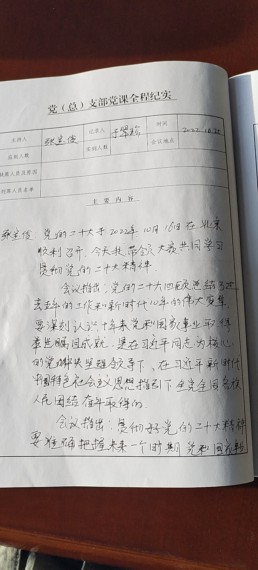 党（总）支部党课全程纪实
主持人 记录人 时间 2022.10.
应到人数 实到人数 会议地点
缺席人员及原因
列席人员名单
主要内容
党的二十大于2022年10月16日在北京
顺利召开，今天我带领大家共同学习
贯彻党的二十大精神。
会议指出：党的二十大
去五年的工作和新时代10年的伟大变革，
要深刻认识十年来党和国家事业取得
成就，是在习近平同志为核心
的党中央坚强领导下、在习近平新时代
中国特色社会主义思想指引下全党全国各族
人民团结奋斗取得的。
会议指出：贯彻好党的二十大精神
要准确把握未来一个时期党和国家事业